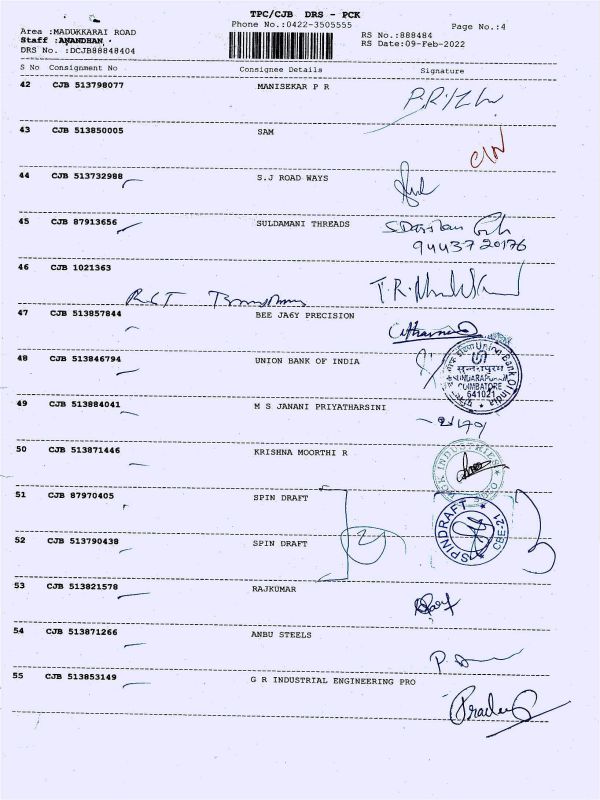 TPC/CJB DRS - PCK
Phone No.:0422-3505555
Page No.:4
Area :MADUKKARAI ROAD
Staff :ANANDHAN
DRS No. :DCJB88848404
RS No.:888484
RS Date:09-Feb-2022
S No Consignment No Consignee Details Signature
42 CJB 513798077 MANISEKAR P R
43 CJB 513850005 SAM
44 CJB 513732988 S.J ROAD WAYS
45 CJB 87913656 SULDAMANI THREADS
9443720176
46 CJB 1021363
47 CJB 513857844 BEE JA6Y PRECISION
48 CJB 513846794 UNION BANK OF INDIA
Union Bank Of India
सुन्दरापुरम
COIMBATORE
641021
49 CJB 513884041 M S JANANI PRIYATHARSINI
50 CJB 513871446 KRISHNA MOORTHI R
INDUSTRIES
51 CJB 87970405 SPIN DRAFT
SPINDRAFT
CBE-21
52 CJB 513790438 SPIN DRAFT
53 CJB 513821578 RAJKUMAR
54 CJB 513871266 ANBU STEELS
55 CJB 513853149 G R INDUSTRIAL ENGINEERING PRO